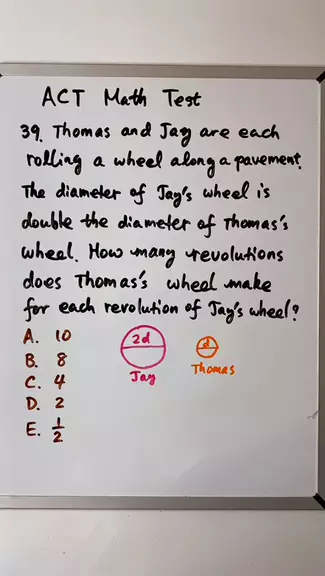 ACT Math Test
39. Thomas and Jay are each
rolling a wheel along a pavement.
The diameter of Jay's wheel is
double the diameter of Thomas's
wheel. How many revolutions
does Thomas's wheel make
for each revolution of Jay's wheel?
A. 10
B. 8
C. 4
D. 2
E. 1/2
2d
Jay
d
Thomas